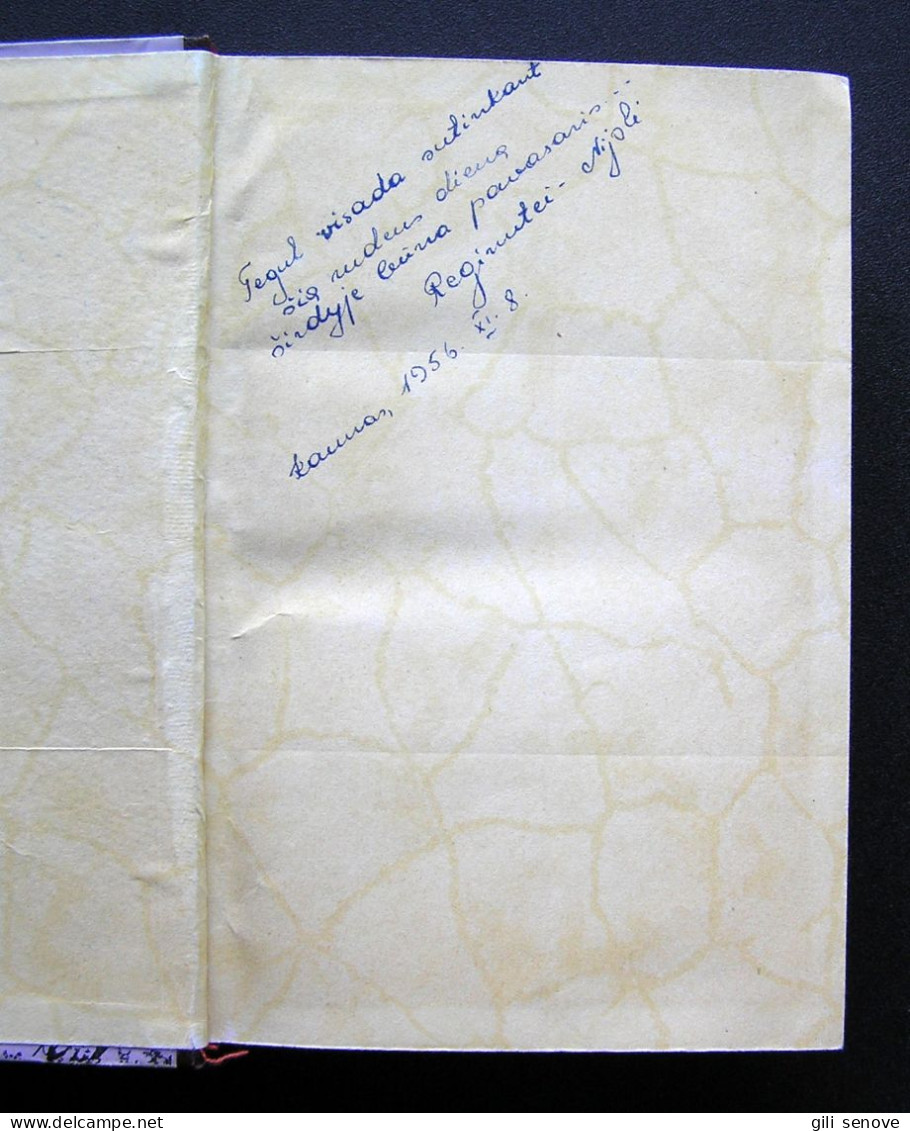 Tegul visada sutinkant
šią rudens dieną
širdyje būna pavasaris...
Reginutei - Nijolė
Kaunas, 1956. XI. 8.
gili senove